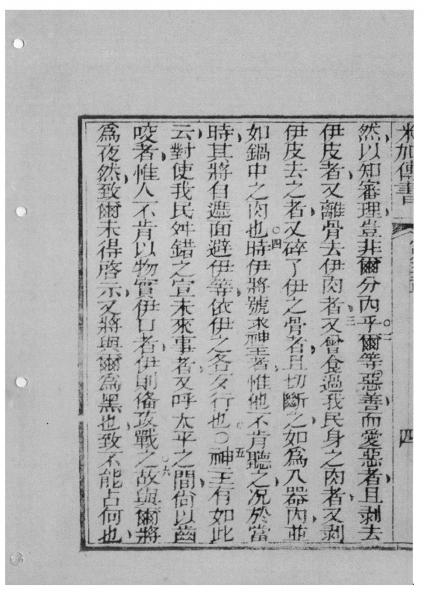 米加傳書
四
然以知審理豈非爾分內乎爾等惡善而愛惡者且剥去
二
伊皮者又離骨去伊肉者又曾食過我民身之肉者又剥
三
伊皮去之者又碎了伊之骨者且切斷之如爲入器內並
如鍋中之肉也時伊將號求神主者惟他不肯聽之况於當
四
時其將自遮面避伊等依伊之各歹行也○神主有如此
五
云對使我民舛錯之宣未來事者又呼太平之間尙以齒
咬者惟人不肯以物實伊口者伊則俻攻戰之故與爾將
六
爲夜然致爾未得啓示又將與爾爲黑也致不能占何也